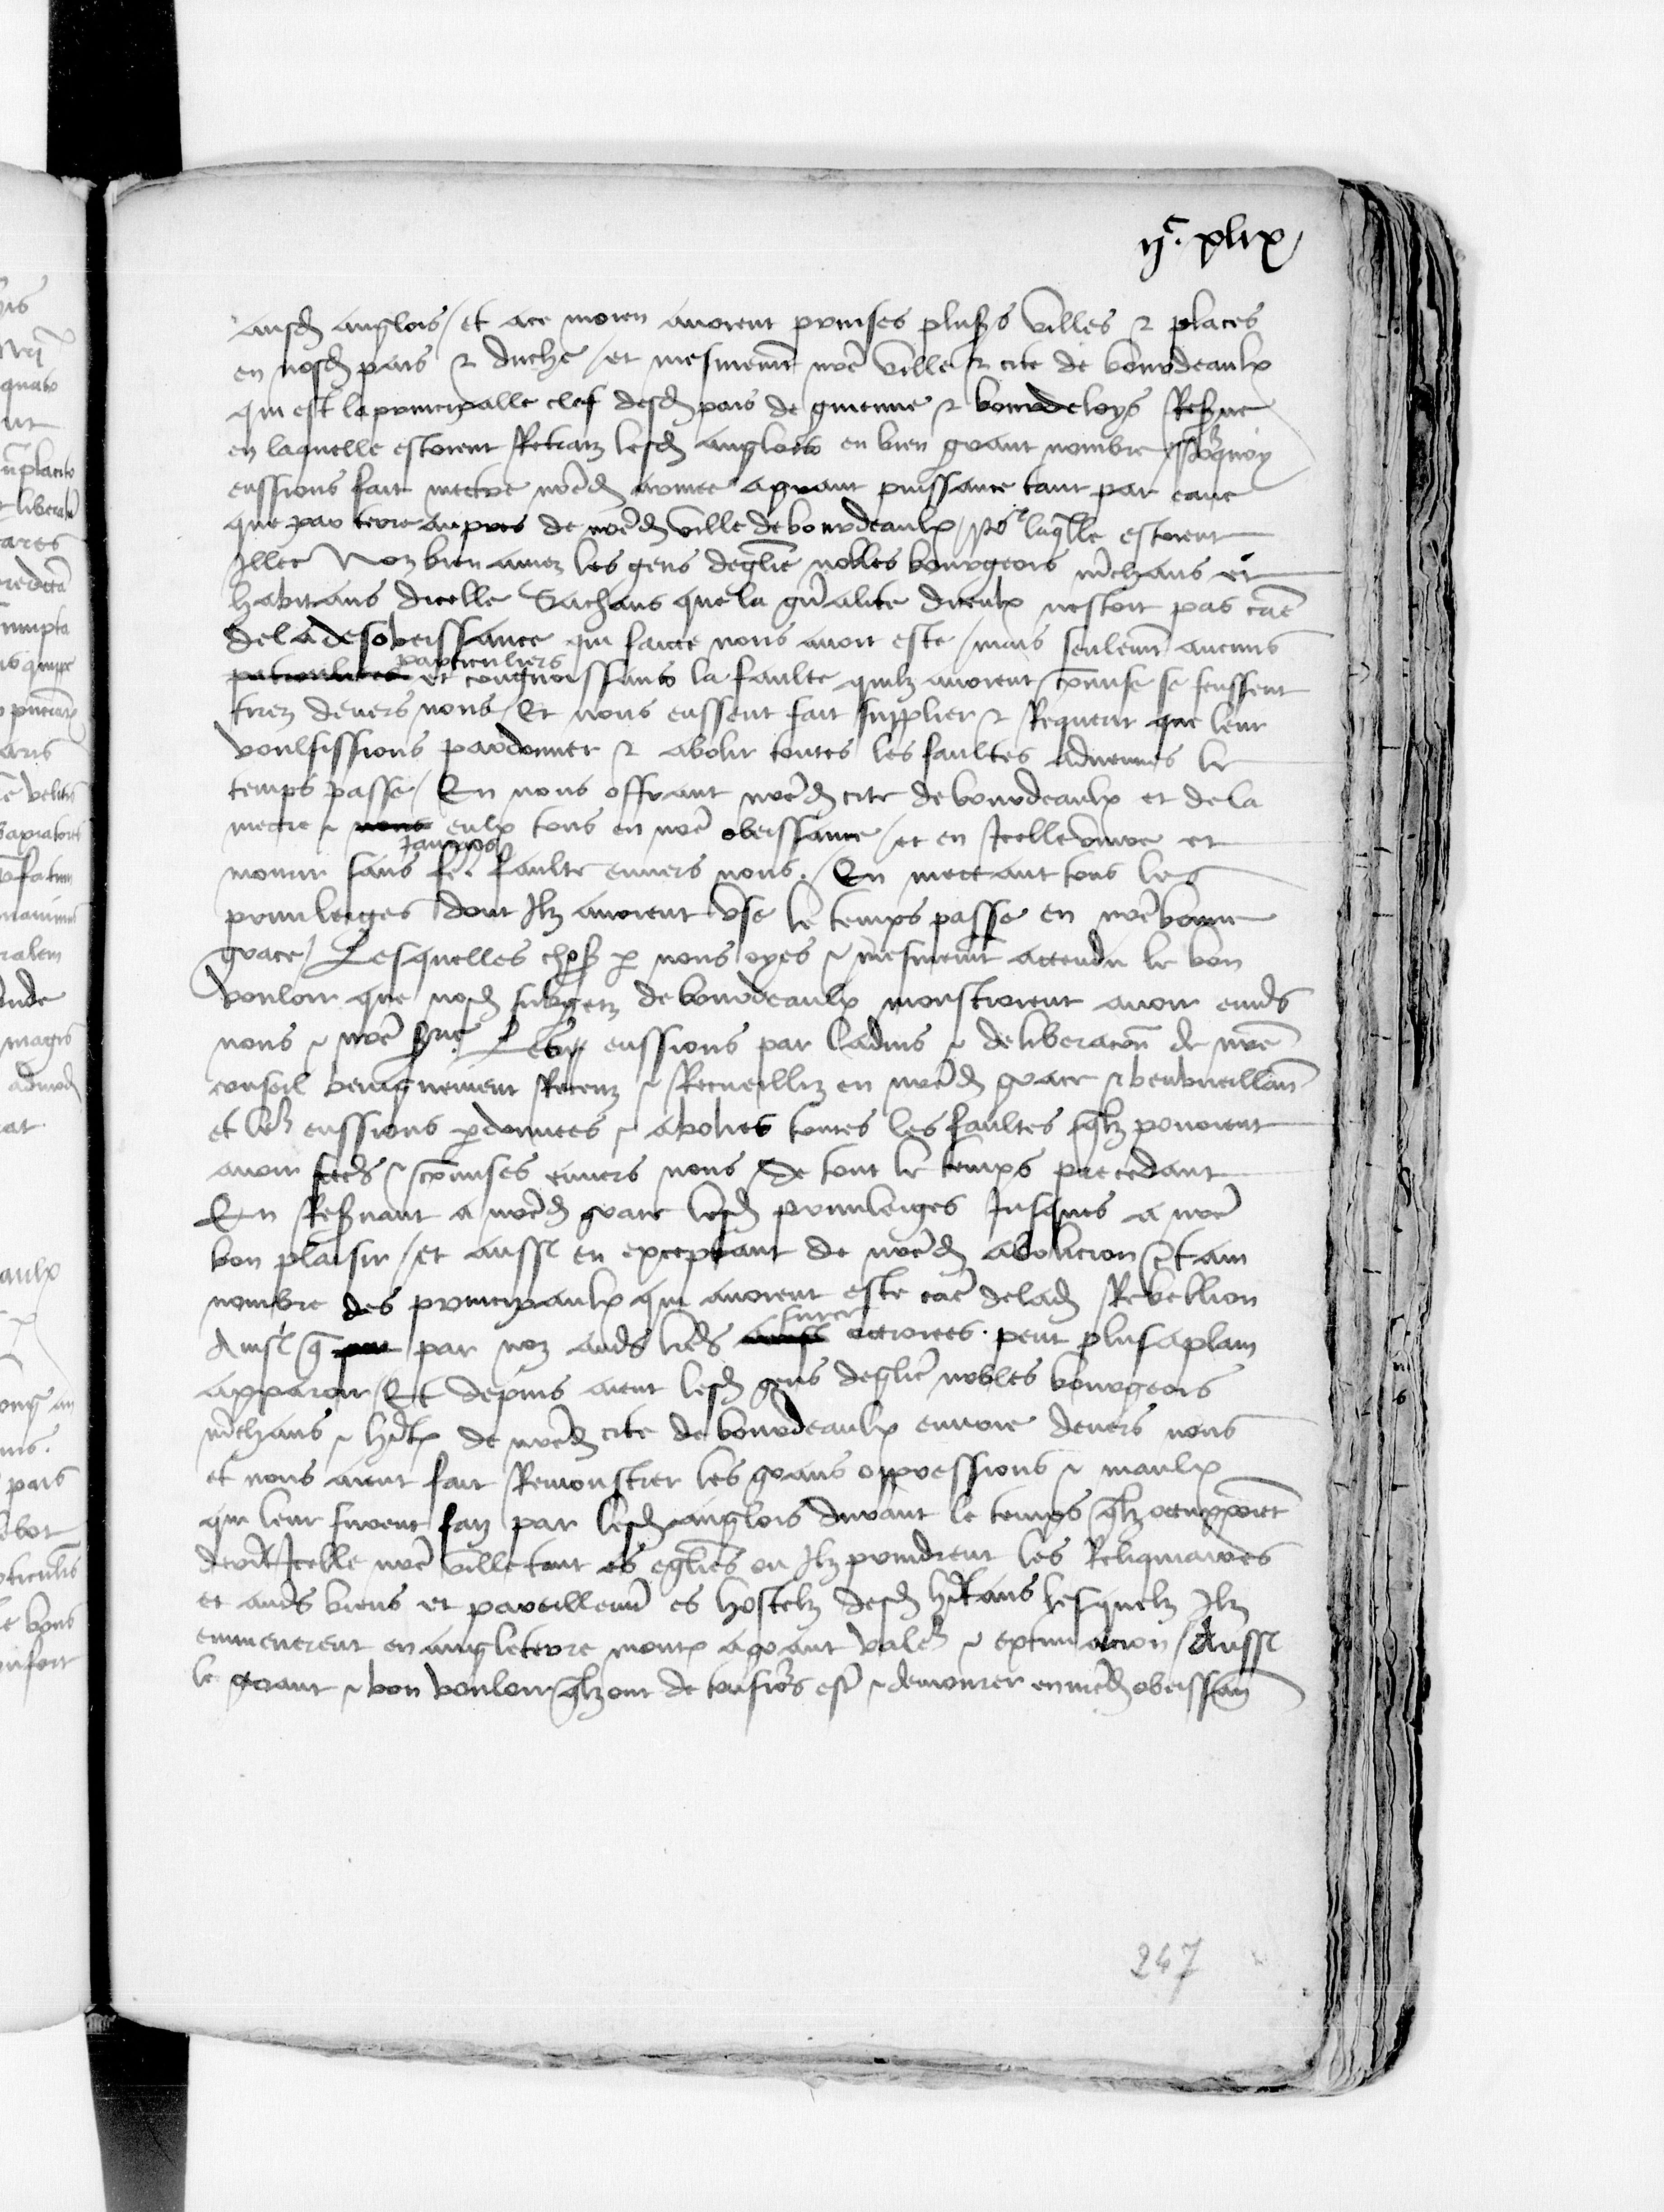 ijc. xlix
ausd anglois / et ace moien avoient prinses plusrs villes & places
en nosd pais & duche / et mesmemt nre ville & cite de bourdeaulx
qui est la principalle clef desd pais de guienne & bourdeloys
en laquelle estoient Retraiz lesd anglois en bien grant nombre / Pourquoy
eussions fait mectre nred armee a grant puissance tant par eaue
que par terre aupres de nred ville de bourdeaulx / laqlle estoient
Illec Noz bien amez les gens deglise nobles bourgeois mrchans et
habitans dicelle Sachans que la gnralite diceulx nestoit pas cae
de la desobeissance qui faicte nous avoit este / mais seulemt aucuns
particuliers et congnoissans la faulte quilz avoient comise se feussent
tirez devers nous / Et nous eussent fait supplier & Requerir que leur
voulsissions pardonner & abolir toutes les faultes advenues le
temps passe / En nous offrant nred cite de bourdeaulx et de la
mectre & eulx tous en nre obeissance / et en Icelle vivre et
mourir sans jamais fe. faulte envers nous. / En mectant tous les
privileiges dont Ilz avoient use le temps passe en nre bonne
grace / Lesquelles choses p nous oyes & mesmemt actendu le bon
vouloir que nosd subgetz de bourdeaulx monstroient avoir envrs
nous & nre Lesqlz eussions par ladvis & deliberacon de nre
conseil benignement Receuz & Recueilliz en nred grace & benivueillance
et leur eussions pdonnees & abolies toutes les faultes qlz povoient
avoir fctes & comises envers nous de tout le temps precedant
En Reservant a nred grace lesd privileiges Jusques a nre
bon plaisir / et aussi en exceptant de nred abolicion certain
nombre des principaulx qui avoient este cae de lad Rebellion
Ainsi q par noz autrs lres sur ce octroiees. peut plus aplain
apparoir / Et depuis aient lesd gens deglise nobles bourgeois
mrchans & hitx de nred cite de bourdeaulx envoie devers nous
et nous aient fait Remonstrer les grans oppressions & maulx
qui leur furent faiz par lesd anglois durant le temps qlz occupperent
Icelle nre ville tant es eglises ou Ilz prindrent les Reliquiaires
et autrs biens et pareillemt es hostelz desd hitans lesquelz Ilz
emmenerent en angleterre montx a grant valer & extimacion / Aussi
le grant & bon vouloir qlz ont de tousjrs estre & demourer en nred obeissance
247